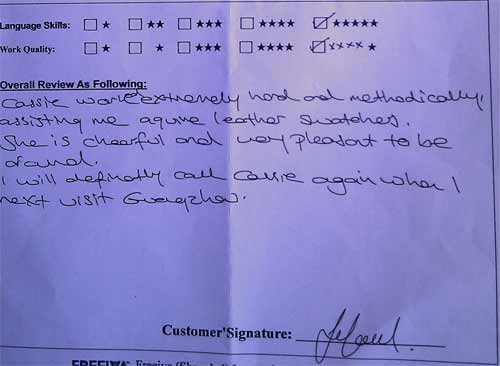 Language Skills: ☐ ★ ☐ ★★ ☐ ★★★ ☐ ★★★★ ☑ ★★★★★
Work Quality: ☐ ★ ☐ ★ ☐ ★★★ ☐ ★★★★ ☑ ★★★★ ★
Overall Review As Following:
Cassie worked extremely hard and methodically,
assisting me aquire leather swatches.
She is cheerful and very pleasant to be
around.
I will definatly call Cassie again when I
next visit Guangzhou.
Customer'Signature: